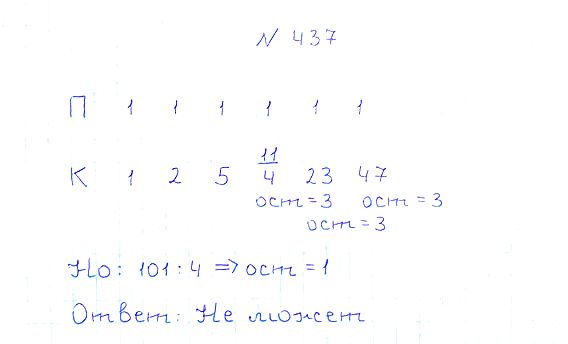 № 437
П 1 1 1 1 1 1
К 1 2 5 11/4 23 47
ост = 3 ост = 3
ост = 3
Но: 101 : 4 => ост = 1
Ответ: Не может